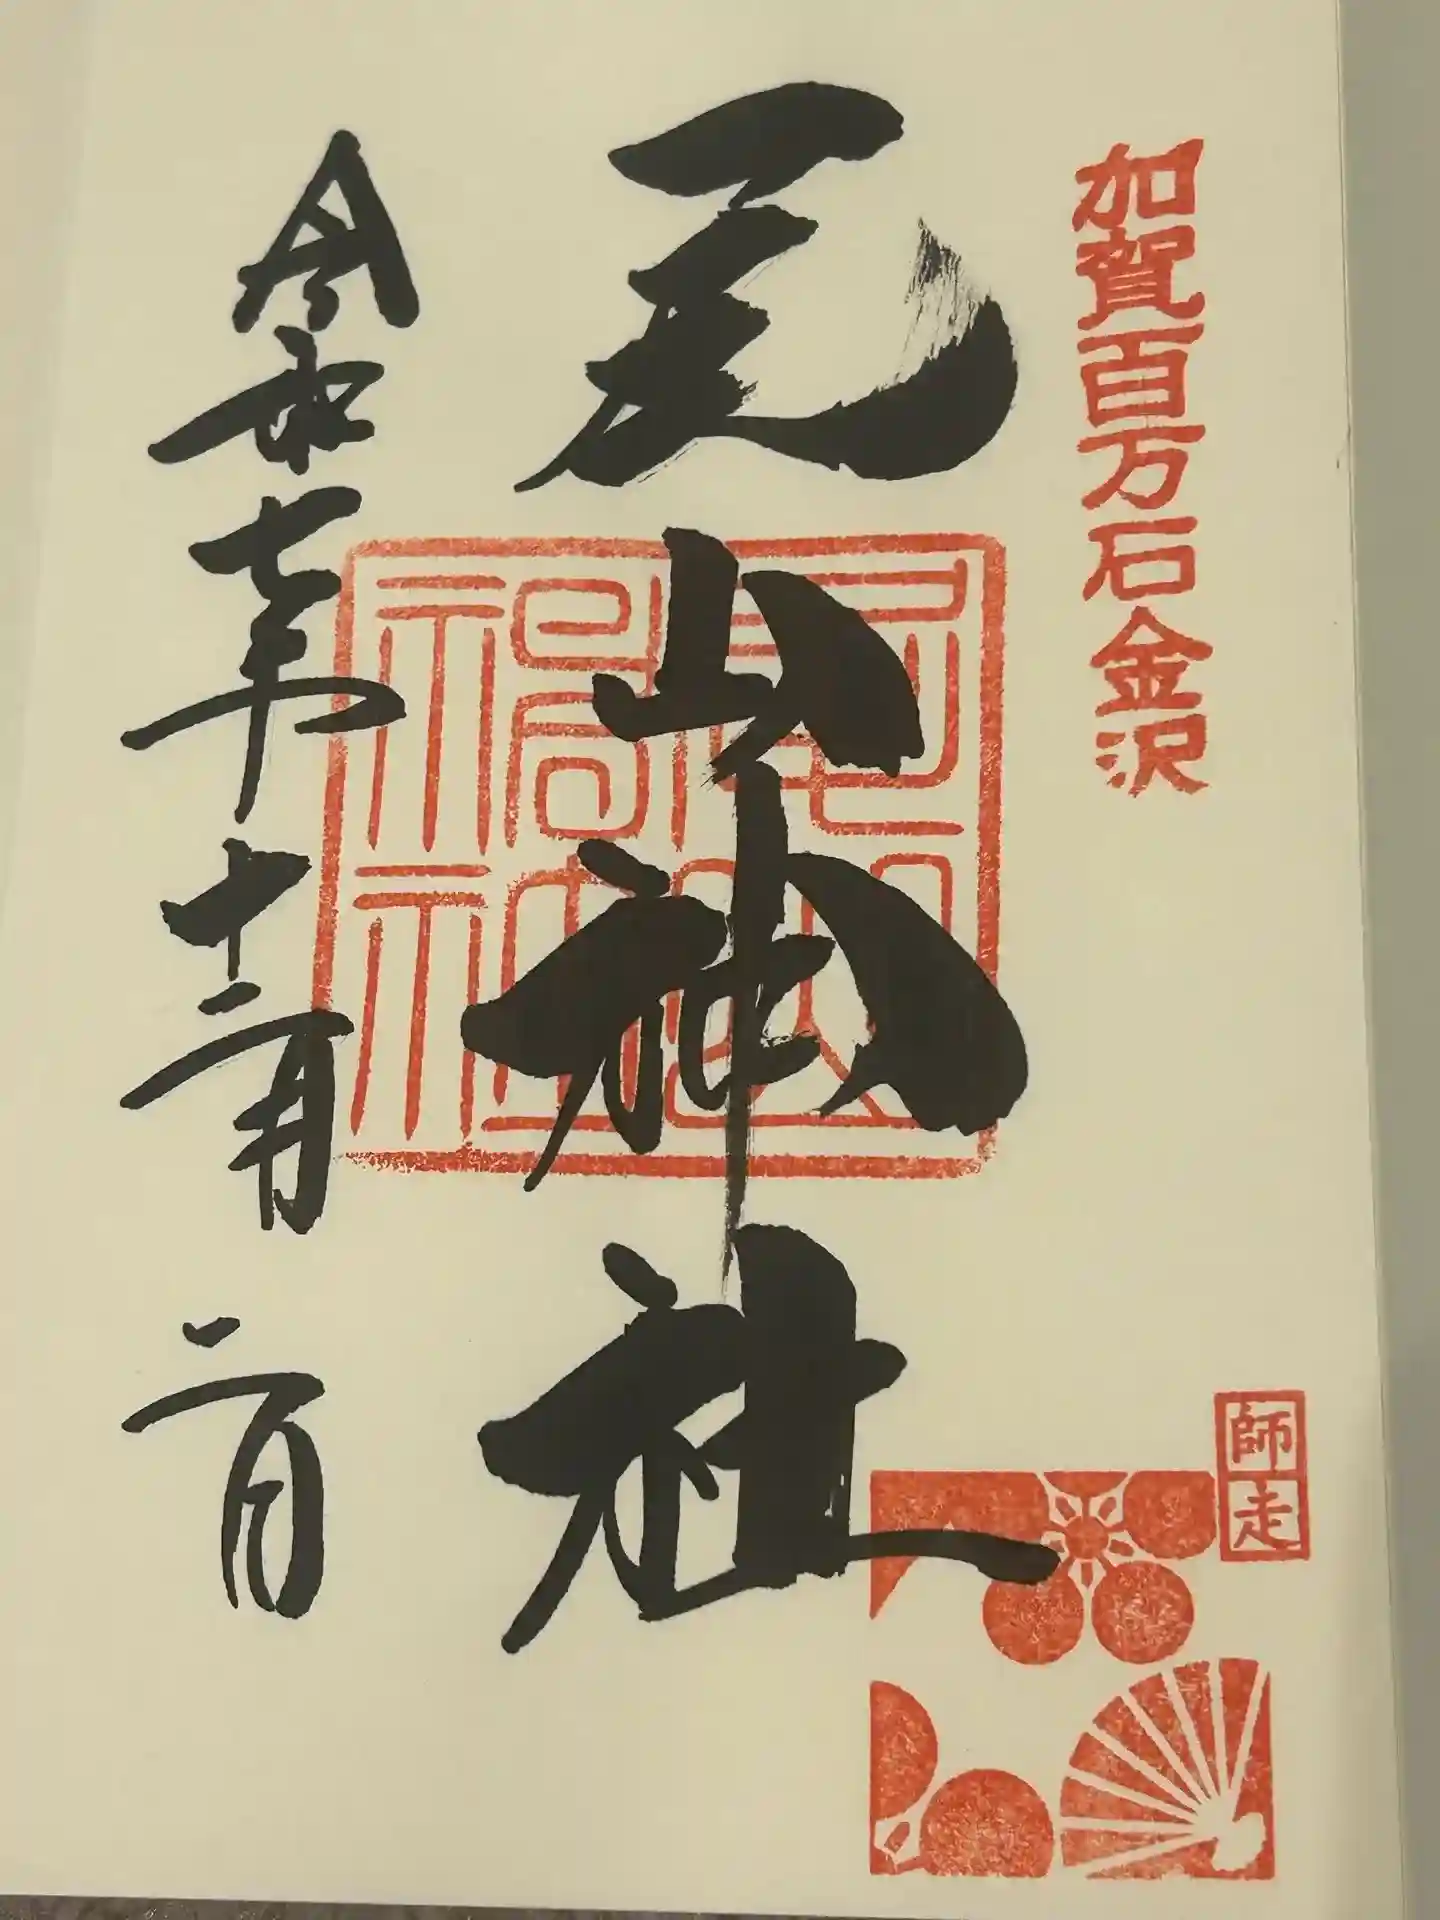 加賀百万石金沢
尾山神社
令和七年十二月二日
師走